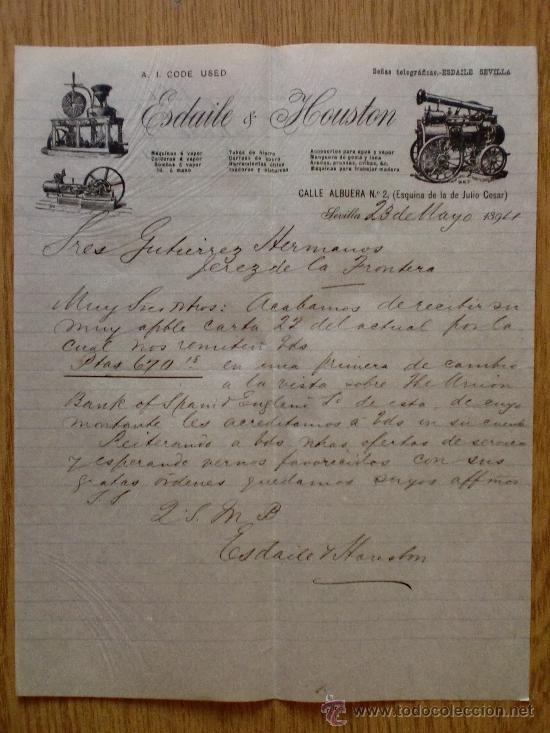 A. I. CODE USED
Señas telegráficas.-ESDAILE SEVILLA
Esdaile & Houston
Máquinas á vapor
Calderas á vapor
Bombas á vapor
Id. á mano
Tubos de hierro
Correas de cuero
Herramientas útiles
Accesorios para agua y vapor
Mangueras de goma y lona
Arados, prensas, cribas, &c.
Máquinas para trabajar madera
CALLE ALBUERA N.º 2, (Esquina de la de Julio Cesar)
Sevilla 23 de Mayo 1894
Sres Gutierrez Hermanos
Jerez de la Frontera
Muy Sres ntros: Acabamos de recibir su
muy apble carta 22 del actual por la
cual nos remiten Vds
Ptas 670 15 en una primera de cambio
a la vista sobre The Union
Bank of Spain & England Ld de esta, de cuyo
montante les acreditamos a Vds en su cuenta
Reiterando a Vds ntras ofertas de servicio
y esperando vernos favorecidos con sus
gratas ordenes quedamos suyos affmos
S. S
Q. S. M. B
Esdaile & Houston
todocoleccion
www.todocoleccion.net